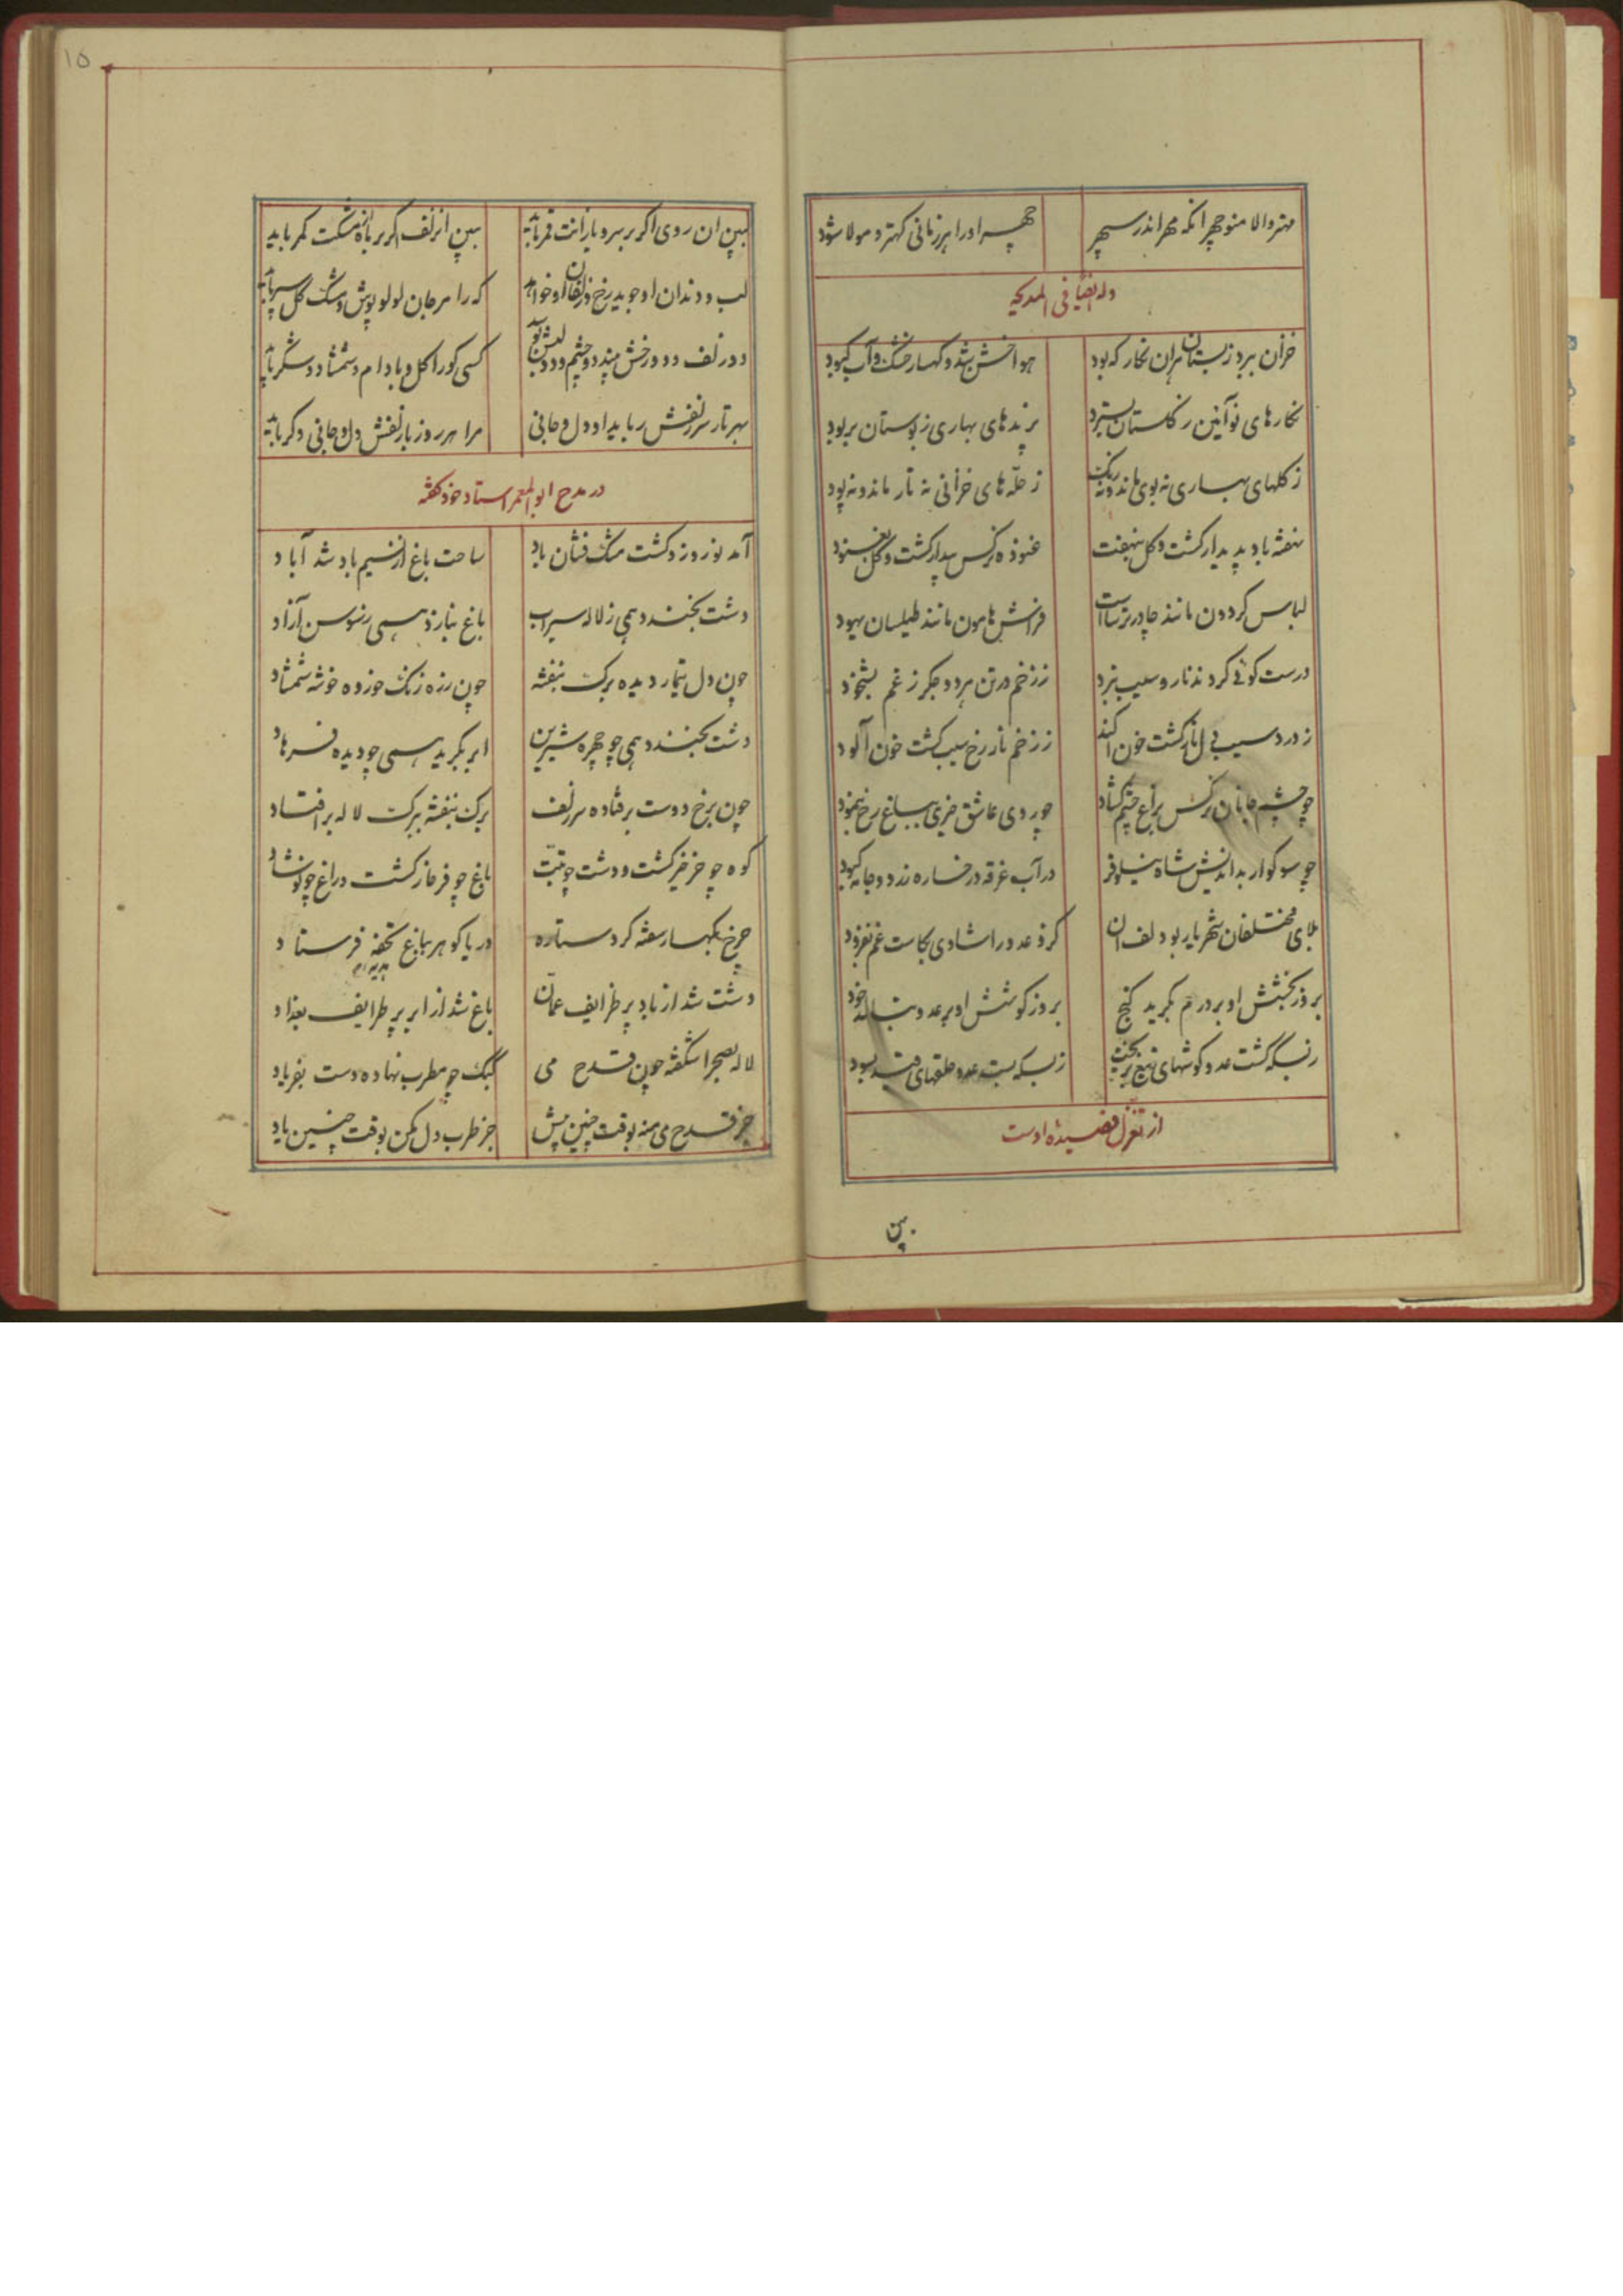 مهتر والا منوچهر انکه مهر اندر سپهر چهر او را هر زمانی کهتر و مولا شود
وله ایضا فی المدیحه
خزان ببرد ز بستان هران نکار که بود هوا خشن شد و کهسار خشک و آب کبود
نکارهای نو آئین ز کلستان بسترد پرندهای بهاری ز بوستان بربود
ز کلهای بهاری نه بوی ماند و نه رنک ز حله های خزانی نه تار ماند و نه پود
بنفشه باد پدیدار کشت و کل بنهفت غنوده نرکس بیدار کشت و کل بغنود
لباس کردون مانند چادر ترساست فراش هامون مانند طیلسان یهود
درست کوئی کردند نار و سیب نبرد ز زخم در تن هر دو جکر ز غم بشخود
ز درد سیب دل نار کشت خون اکند ز زخم نار رخ سیب کشت خون آلود
چو چشم جانان نرکس براغ چشم کشاد چو روی عاشق خیری بباغ رخ بنمود
چو سوکوار بداندیش شاه نیلوفر در آب غرقه و رخساره زرد و جامه کبود
بلای مختلفان شهریار بودلف ان کزو عدو را شادی بکاست غم بفزود
بروز بخشش او بر درم بکرید کنج بروز کوشش او بر عدو بنالد خود
ز بسکه کشت عدو کوشهای تیغ بریخت ز بسکه بست عدو حلقهای قید بسود
از تغزل قصیده اوست
ببین
۱۵
ببین ان روی اکر بر سرو بارانت قمر باید ببین ان زلف اکر بر ماه از مشکت کمر باید
لب و دندان او جوید رخ و زلفان او خواهد که را مرجان لولو پوش و مشک کل سپر باید
دو زلف و دو رخش بیند دو چشم و دو لبش بوید کسی کو را کل و بادام و شمشاد و شکر باید
بهر تار سر زلفش رباید او دل و جانی مرا هر روز با زلفش دل و جانی دکر باید
در مدح ابو المعمر استاد خود کفته
آمد نوروز و کشت مشک فشان باد ساحت باغ از نسیم باد شد آباد
دشت بخندد همی ز لاله سیراب باغ بنازد همی ز سوسن آزاد
چون دل تیمار دیده برک بنفشه چون زره زنک خورده خوشه شمشاد
دشت بخندد همی چو چهره شیرین ابر بکرید همی چو دیده فرهاد
چون برخ دوست بر فتاده سر زلف برک بنفشه ببرک لاله بر افتاد
کوه چو خرخیز کشت و دشت چو تبت باغ چو فرخار کشت و راغ چو نوشاد
چرخ بکهسار سفته کرد ستاره دریا کوهر بباغ تحفه فرستاد
هدیه
دشت شد از باد پر ظرایف عمان باغ شد از ابر پر طرایف بغداد
لاله بصحرا شکفته چون قدح می کبک چو مطرب نهاده دست بفریاد
جز قدح می منه بوقت چنین پیش جز طرب دل مکن بوقت چنین یاد